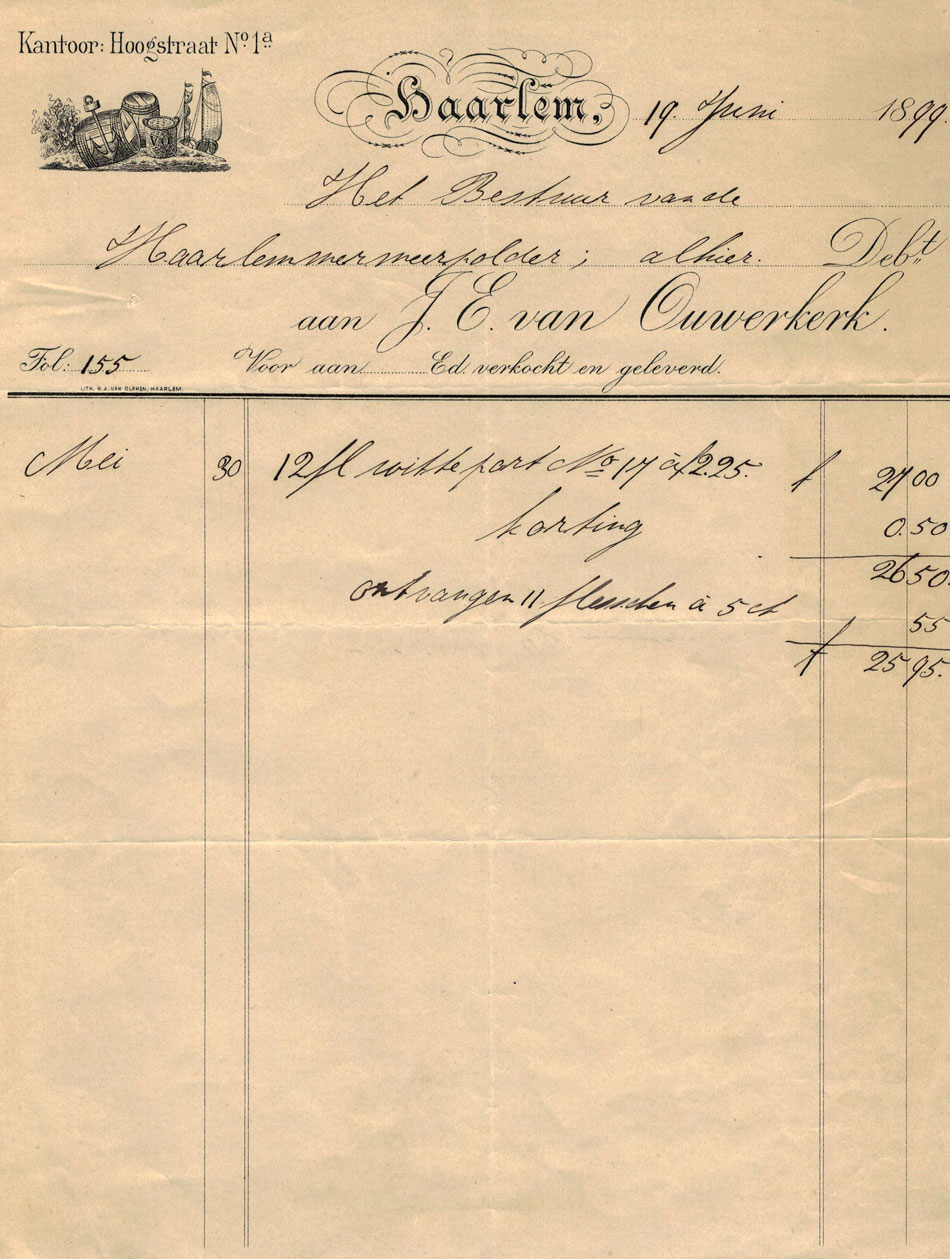 Kantoor: Hoogstraat No. 1a
Haarlem, 19 Juni 1899.
Het Bestuur van de
Haarlemmermeerpolder; alhier. Debt.
aan J. E. van Ouwerkerk.
Fol: 155 Voor aan Ed. verkocht en geleverd.
LITH. B. A. VAN OLPHEN, HAARLEM.
Mei 30 12 fl witte port No 17 à f2.25. f 27 00
korting 0.50
26 50.
ontvangen 11 flesschen à 5 ct 55
f 25 95.